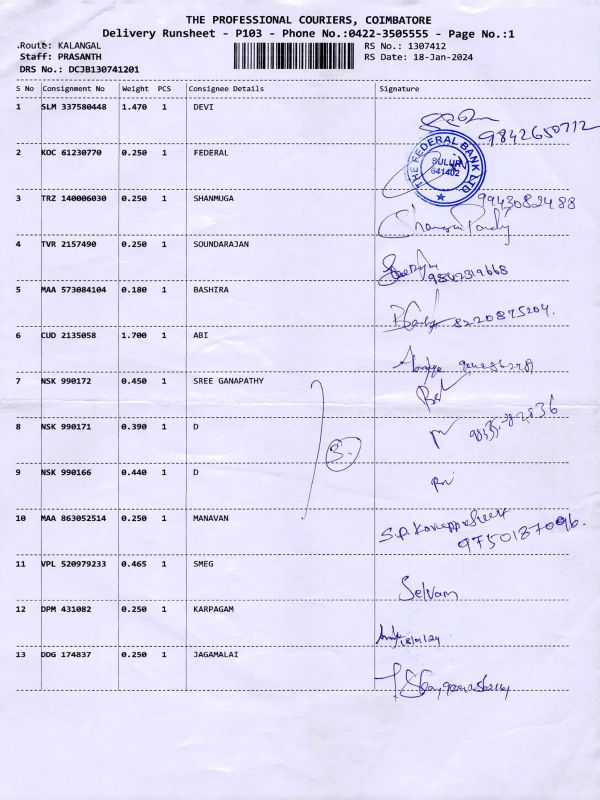 THE PROFESSIONAL COURIERS, COIMBATORE
Delivery Runsheet - P103 - Phone No.:0422-3505555 - Page No.:1
Route: KALANGAL
RS No.: 1307412
Staff: PRASANTH
RS Date: 18-Jan-2024
DRS No.: DCJB130741201
S No Consignment No Weight PCS Consignee Details Signature
1 SLM 337580448 1.470 1 DEVI
9842650712
2 KOC 61230770 0.250 1 FEDERAL
THE FEDERAL BANK LTD
SULUR
641402
3 TRZ 140006030 0.250 1 SHANMUGA
9943082488
4 TVR 2157490 0.250 1 SOUNDARAJAN
9842319668
5 MAA 573084104 0.180 1 BASHIRA
8220875204.
6 CUD 2135058 1.700 1 ABI
7 NSK 990172 0.450 1 SREE GANAPATHY
8 NSK 990171 0.390 1 D
3
9 NSK 990166 0.440 1 D
10 MAA 863052514 0.250 1 MANAVAN
9750187096.
11 VPL 520979233 0.465 1 SMEG
Selvam
12 DPM 431082 0.250 1 KARPAGAM
18/01/24
13 DDG 174837 0.250 1 JAGAMALAI